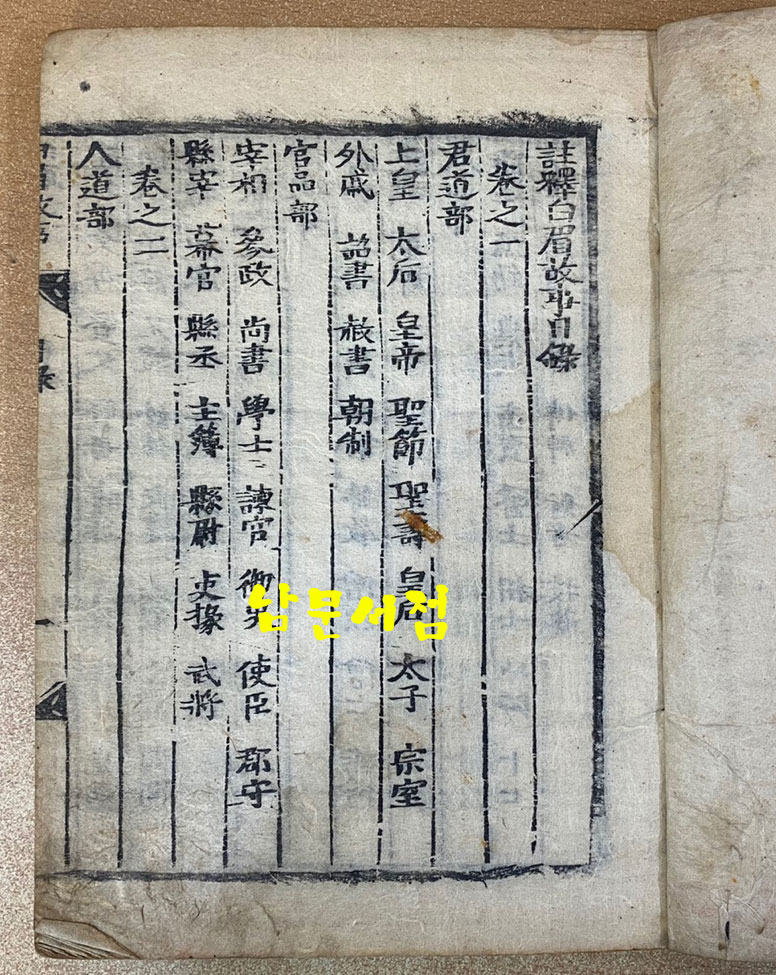 註釋白眉故事目錄
卷之一
君道部
上皇 太后 皇帝 聖節 聖壽 皇后 太子 宗室
外戚 詔書 赦書 朝制
官品部
宰相 參政 尚書 學士 諫官 御史 使臣 郡守
縣宰 幕官 縣丞 主簿 縣尉 吏掾 武將
卷之二
人道部
白眉故事 目錄 一
남문서점